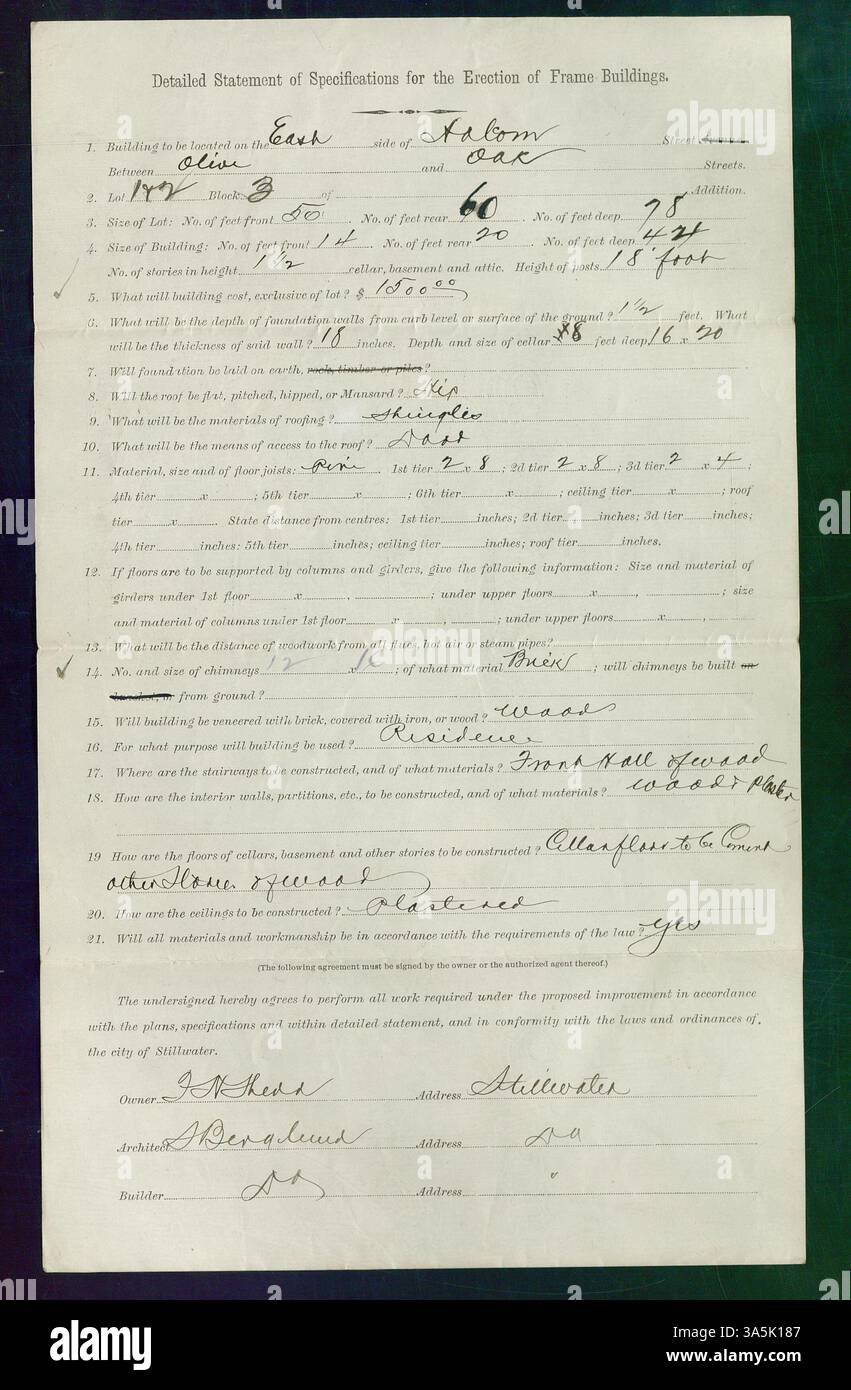 Detailed Statement of Specifications for the Erection of Frame Buildings.
1. Building to be located on the East side of Holcom Street Avenue
Between Olive and Oak Streets.
2. Lot 1&2 Block 3 of Addition.
3. Size of Lot: No. of feet front 50 No. of feet rear 60. No. of feet deep 78
4. Size of Building: No. of feet front 14. No. of feet rear 20 No. of feet deep 44
No. of stories in height 1 1/2 cellar, basement and attic. Height of posts 18 foot
5. What will building cost, exclusive of lot? $ 1500 00
6. What will be the depth of foundation walls from curb level or surface of the ground? 1 1/2 feet. What
will be the thickness of said wall? 18 inches. Depth and size of cellar 8 feet deep 16 x 20
7. Will foundation be laid on earth, rock, timber or piles?
8. Will the roof be flat, pitched, hipped, or Mansard? Hip
9. What will be the materials of roofing? Shingles
10. What will be the means of access to the roof?
11. Material, size and of floor joists: Pine. 1st tier 2 x 8; 2d tier 2 x 8; 3d tier 2 x 4;
4th tier x ; 5th tier x ; 6th tier x ; ceiling tier x ; roof
tier x . State distance from centres: 1st tier inches; 2d tier inches; 3d tier inches;
4th tier inches: 5th tier inches; ceiling tier inches; roof tier inches.
12. If floors are to be supported by columns and girders, give the following information: Size and material of
girders under 1st floor x , ; under upper floors x , ; size
and material of columns under 1st floor x , ; under upper floors x ,
13. What will be the distance of woodwork from all flues, hot air or steam pipes?
14. No. and size of chimneys 12 x 16; of what material Brick; will chimneys be built on
bracket, or from ground?
15. Will building be veneered with brick, covered with iron, or wood? Wood
16. For what purpose will building be used? Residence
17. Where are the stairways to be constructed, and of what materials? Front Hall of wood
18. How are the interior walls, partitions, etc., to be constructed, and of what materials? Wood & Plaster
19 How are the floors of cellars, basement and other stories to be constructed? Cellar floor to be Cement
other Stories of wood
20. How are the ceilings to be constructed? Plastered
21. Will all materials and workmanship be in accordance with the requirements of the law? yes
(The following agreement must be signed by the owner or the authorized agent thereof.)
The undersigned hereby agrees to perform all work required under the proposed improvement in accordance
with the plans, specifications and within detailed statement, and in conformity with the laws and ordinances of,
the city of Stillwater.
Owner Address Stillwater
Architect Berglund Address Do
Builder Do Address "
alamy
Image ID: 3A5K187
www.alamy.com